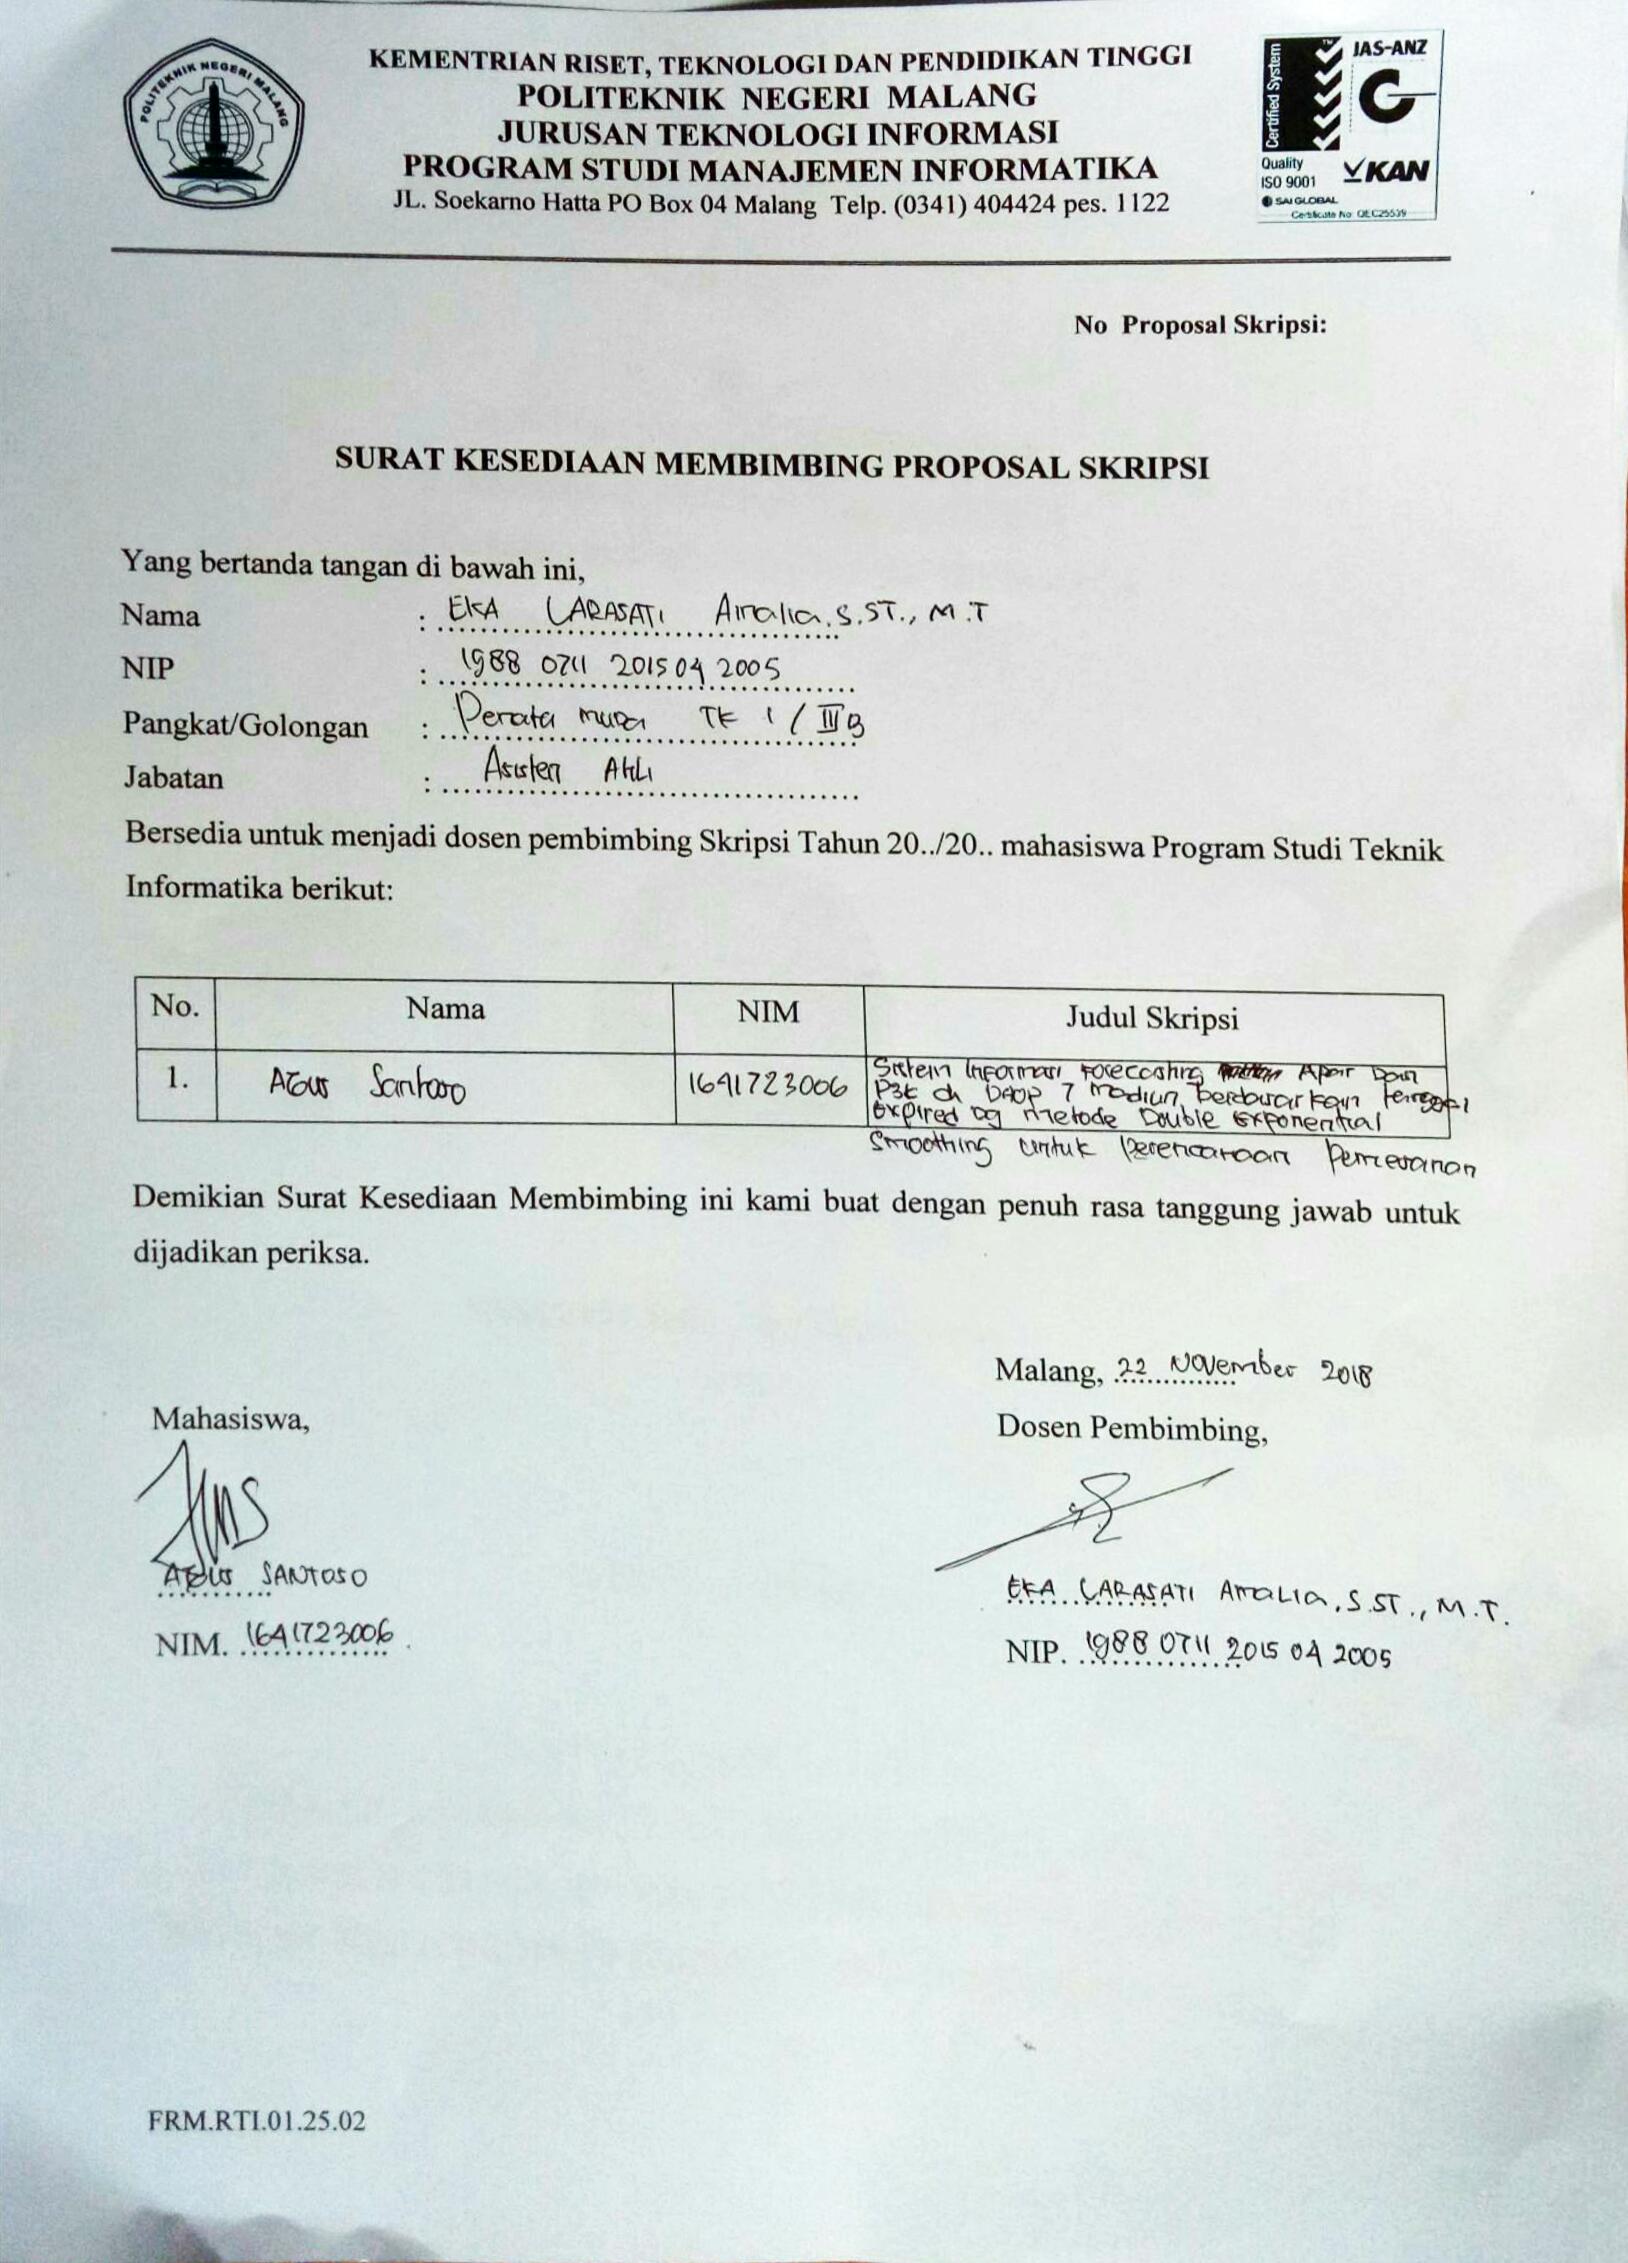 POLITEKNIK NEGERI MALANG
KEMENTRIAN RISET, TEKNOLOGI DAN PENDIDIKAN TINGGI
POLITEKNIK NEGERI MALANG
JURUSAN TEKNOLOGI INFORMASI
PROGRAM STUDI MANAJEMEN INFORMATIKA
JL. Soekarno Hatta PO Box 04 Malang Telp. (0341) 404424 pes. 1122
Certified System
JAS-ANZ
Quality
ISO 9001
KAN
SAI GLOBAL
Certificate No: QEC25539
No Proposal Skripsi:
SURAT KESEDIAAN MEMBIMBING PROPOSAL SKRIPSI
Yang bertanda tangan di bawah ini,
Nama : EKA LARASATI Amalia, S.ST., M.T
NIP : 1988 0711 2015 04 2005
Pangkat/Golongan : Penata muda TK 1 / III B
Jabatan : Asisten Ahli
Bersedia untuk menjadi dosen pembimbing Skripsi Tahun 20../20.. mahasiswa Program Studi Teknik
Informatika berikut:
No. Nama NIM Judul Skripsi
1. Agus Santoso 1641723006 Sistem Informasi Forecasting Apar Dan
P3K di DAOP 7 Madiun berdasarkan
Expired dg metode Double Exponential
Smoothing untuk perencanaan Pemesanan
Demikian Surat Kesediaan Membimbing ini kami buat dengan penuh rasa tanggung jawab untuk
dijadikan periksa.
Malang, 22 November 2018
Mahasiswa,
Dosen Pembimbing,
AGUS SANTOSO
EKA LARASATI AMALIA, S.ST., M.T.
NIM. 1641723006
NIP. 1988 0711 2015 04 2005
FRM.RTI.01.25.02